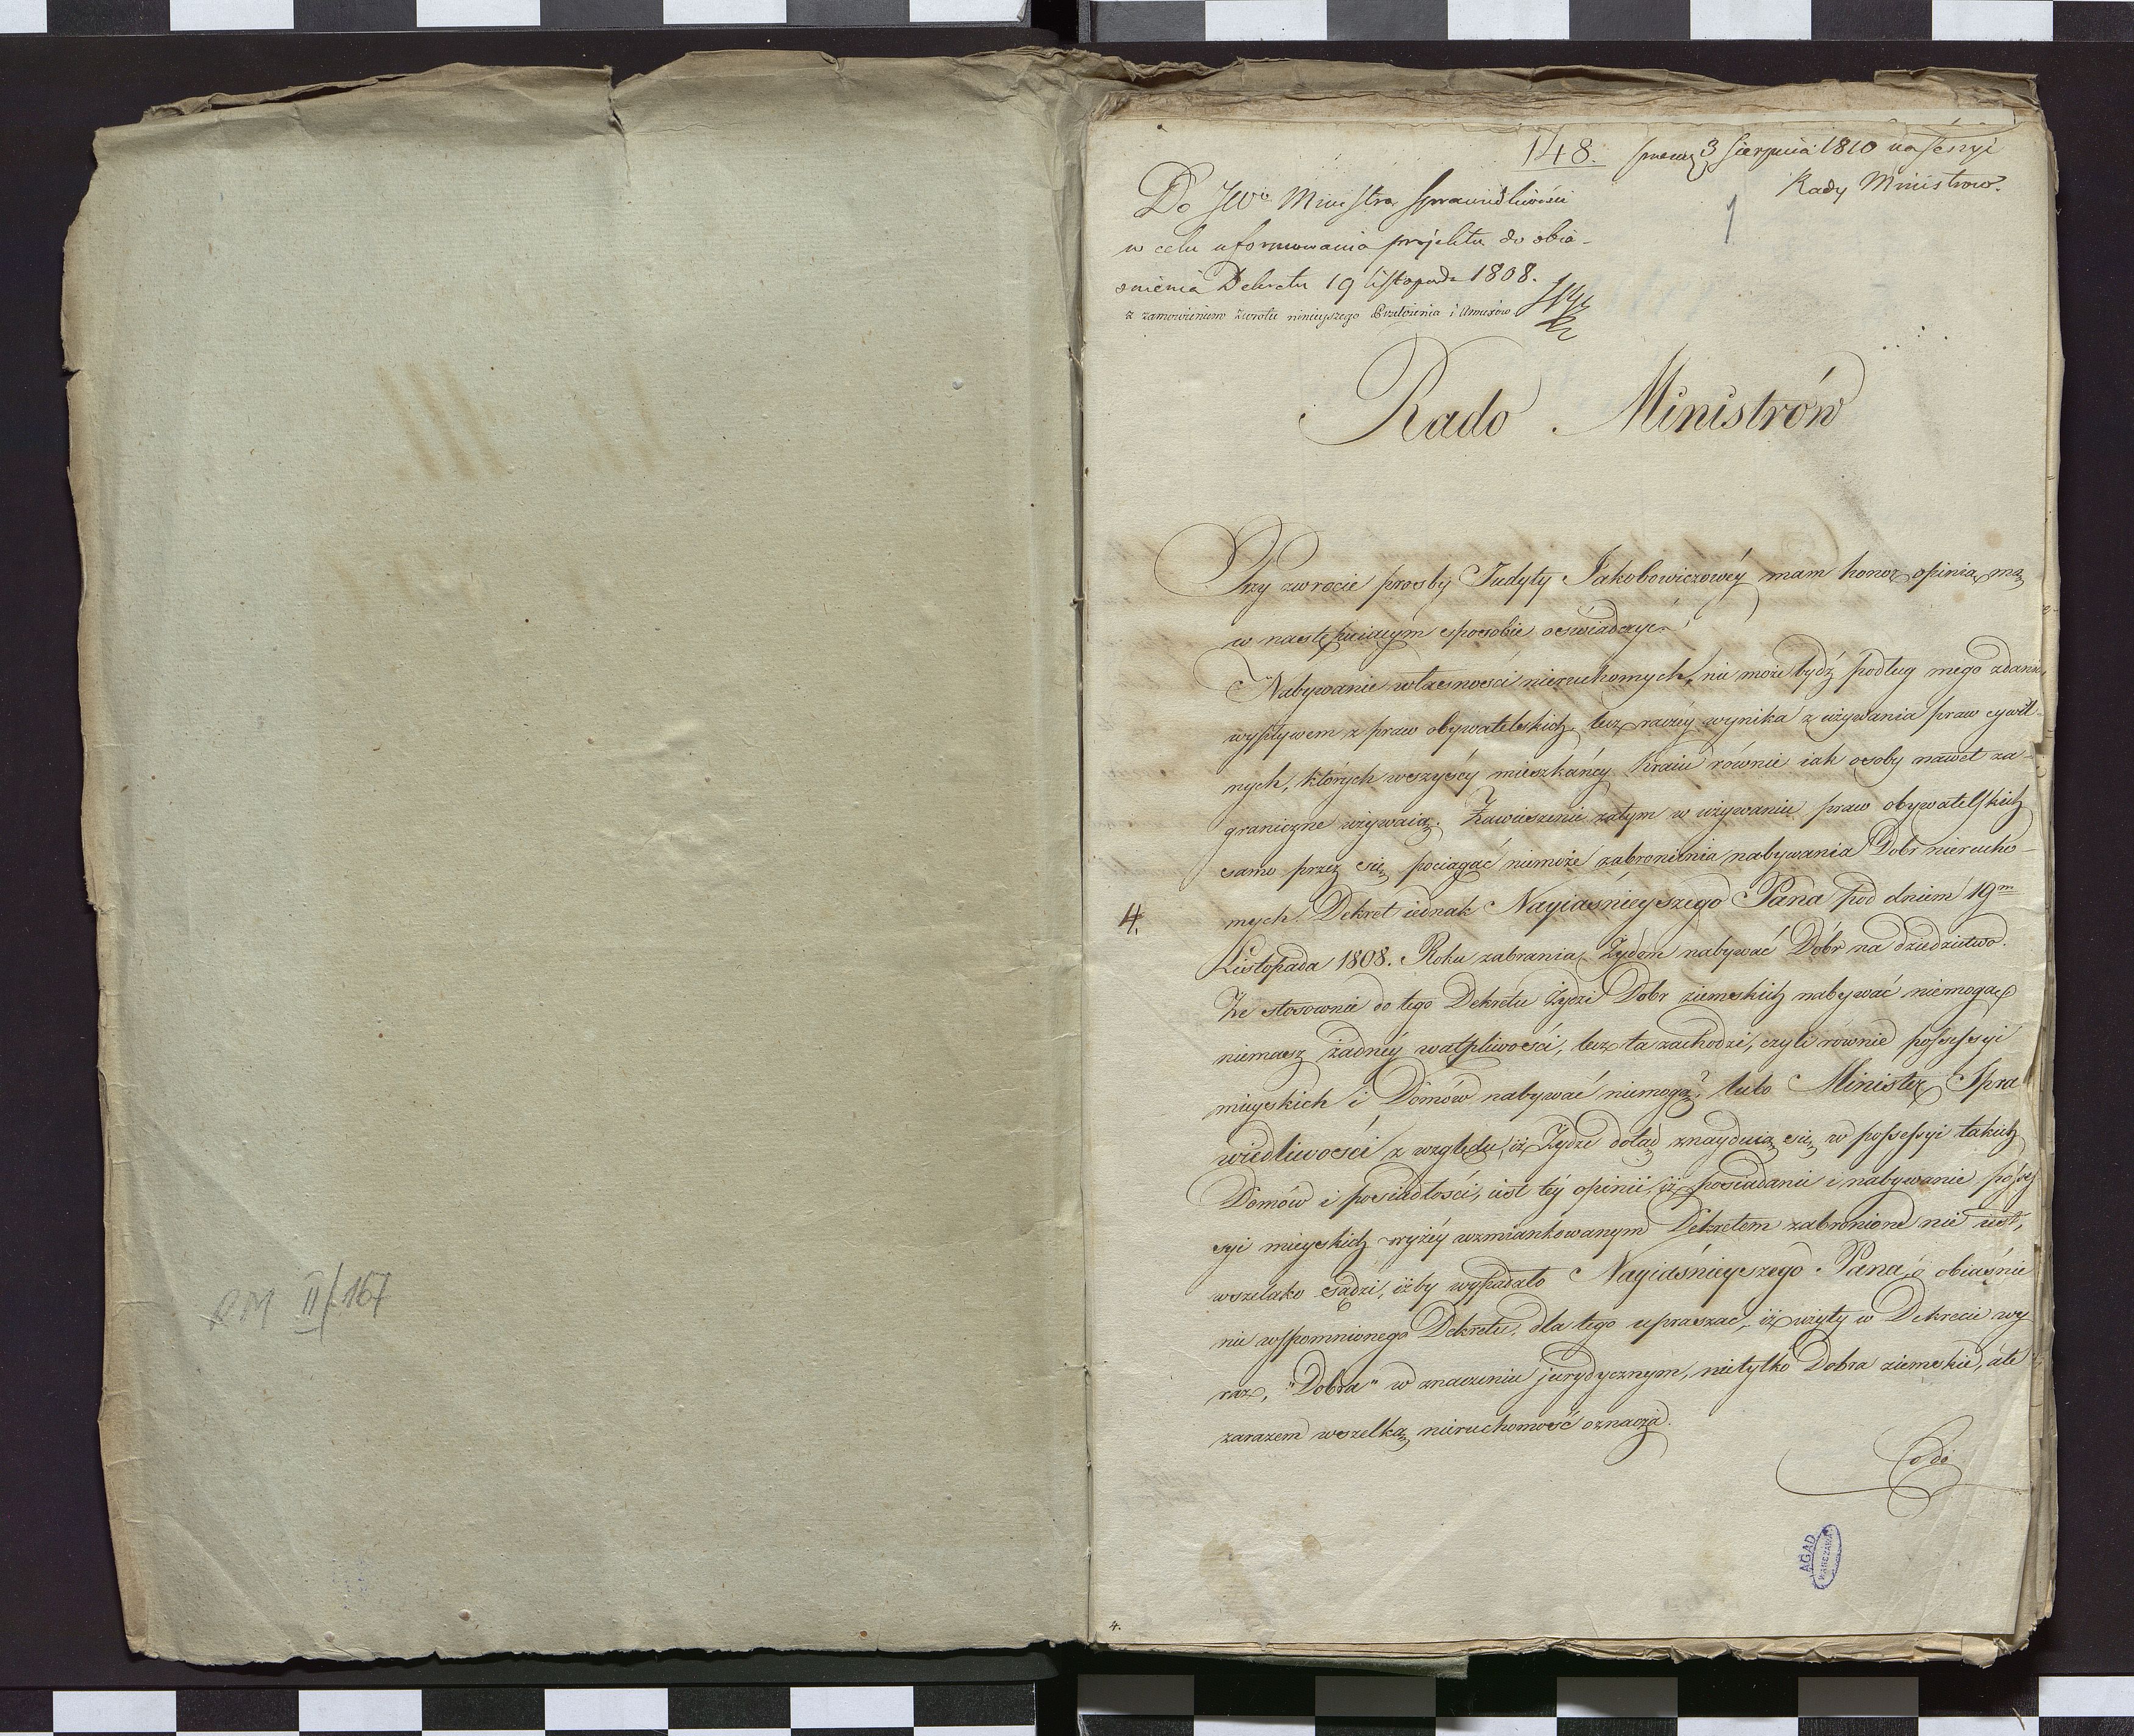 RM II/167
148. 3 Sierpnia 1810 na sessyi
Rady Ministrow.
1
Do JWo Ministra Sprawiedliwości
w celu uformowania projektu do obia-
snienia Dekretu 19 Listopada 1808.
z zamowieniem zwrotu ninieyszego i Annexow
Rado Ministrów
Przy zwrocie prosby Judyty Jakobowiczowéy mam honor opinią mą
w następuiącym sposobie oświadczyć.
Nabywanie własności nieruchomych, nie może bydź podług mego zdania,
wypływem z praw obywatelskich, lecz raczéy wynika z używania praw cywil-
nych, których wszyścy mieszkańcy Kraiu równie iak osoby nawet za-
graniczne używaią. Zawieszenie zatym w używaniu praw obywatelskich
samo przez się pociągać niemoże zabronienia nabywania Dobr nierucho-
4. mych. Dekret iednak Nayiaśnieyszego Pana pod dniem 19m
Listopada 1808. Roku zabrania Żydom nabywać Dóbr na dziedzictwo.
Że stosownie do tego Dekretu Żydzi Dobr ziemskich nabywać niemogą
niemasz żadnéy wątpliwości, lecz ta zachodzi, czyli równie possessyi
mieyskich i Domów nabywać niemogą? lubo Minister Spra
wiedliwości z względu, iż Żydzi dotąd znayduią się w possessyi takich
Domów i posiadłości, iest téy opinii, iż posiadanie i nabywanie posses
syi mieyskich wyżéy wzmiankowanym Dekretem zabronione nie iest,
wszelako sądzi, iżby wypadało Nayiaśnieyszego Pana o obiaśnie
nie wspomnionego Dekretu, dla tego upraszać, iż użyty w Dekrecie wy
raz, "Dobra" w znaczeniu jurydycznym, nietylko Dobra ziemskie, ale
zarazem wszelką nieruchomość oznacza.
Co do
AGAD
WARSZAWA
4.